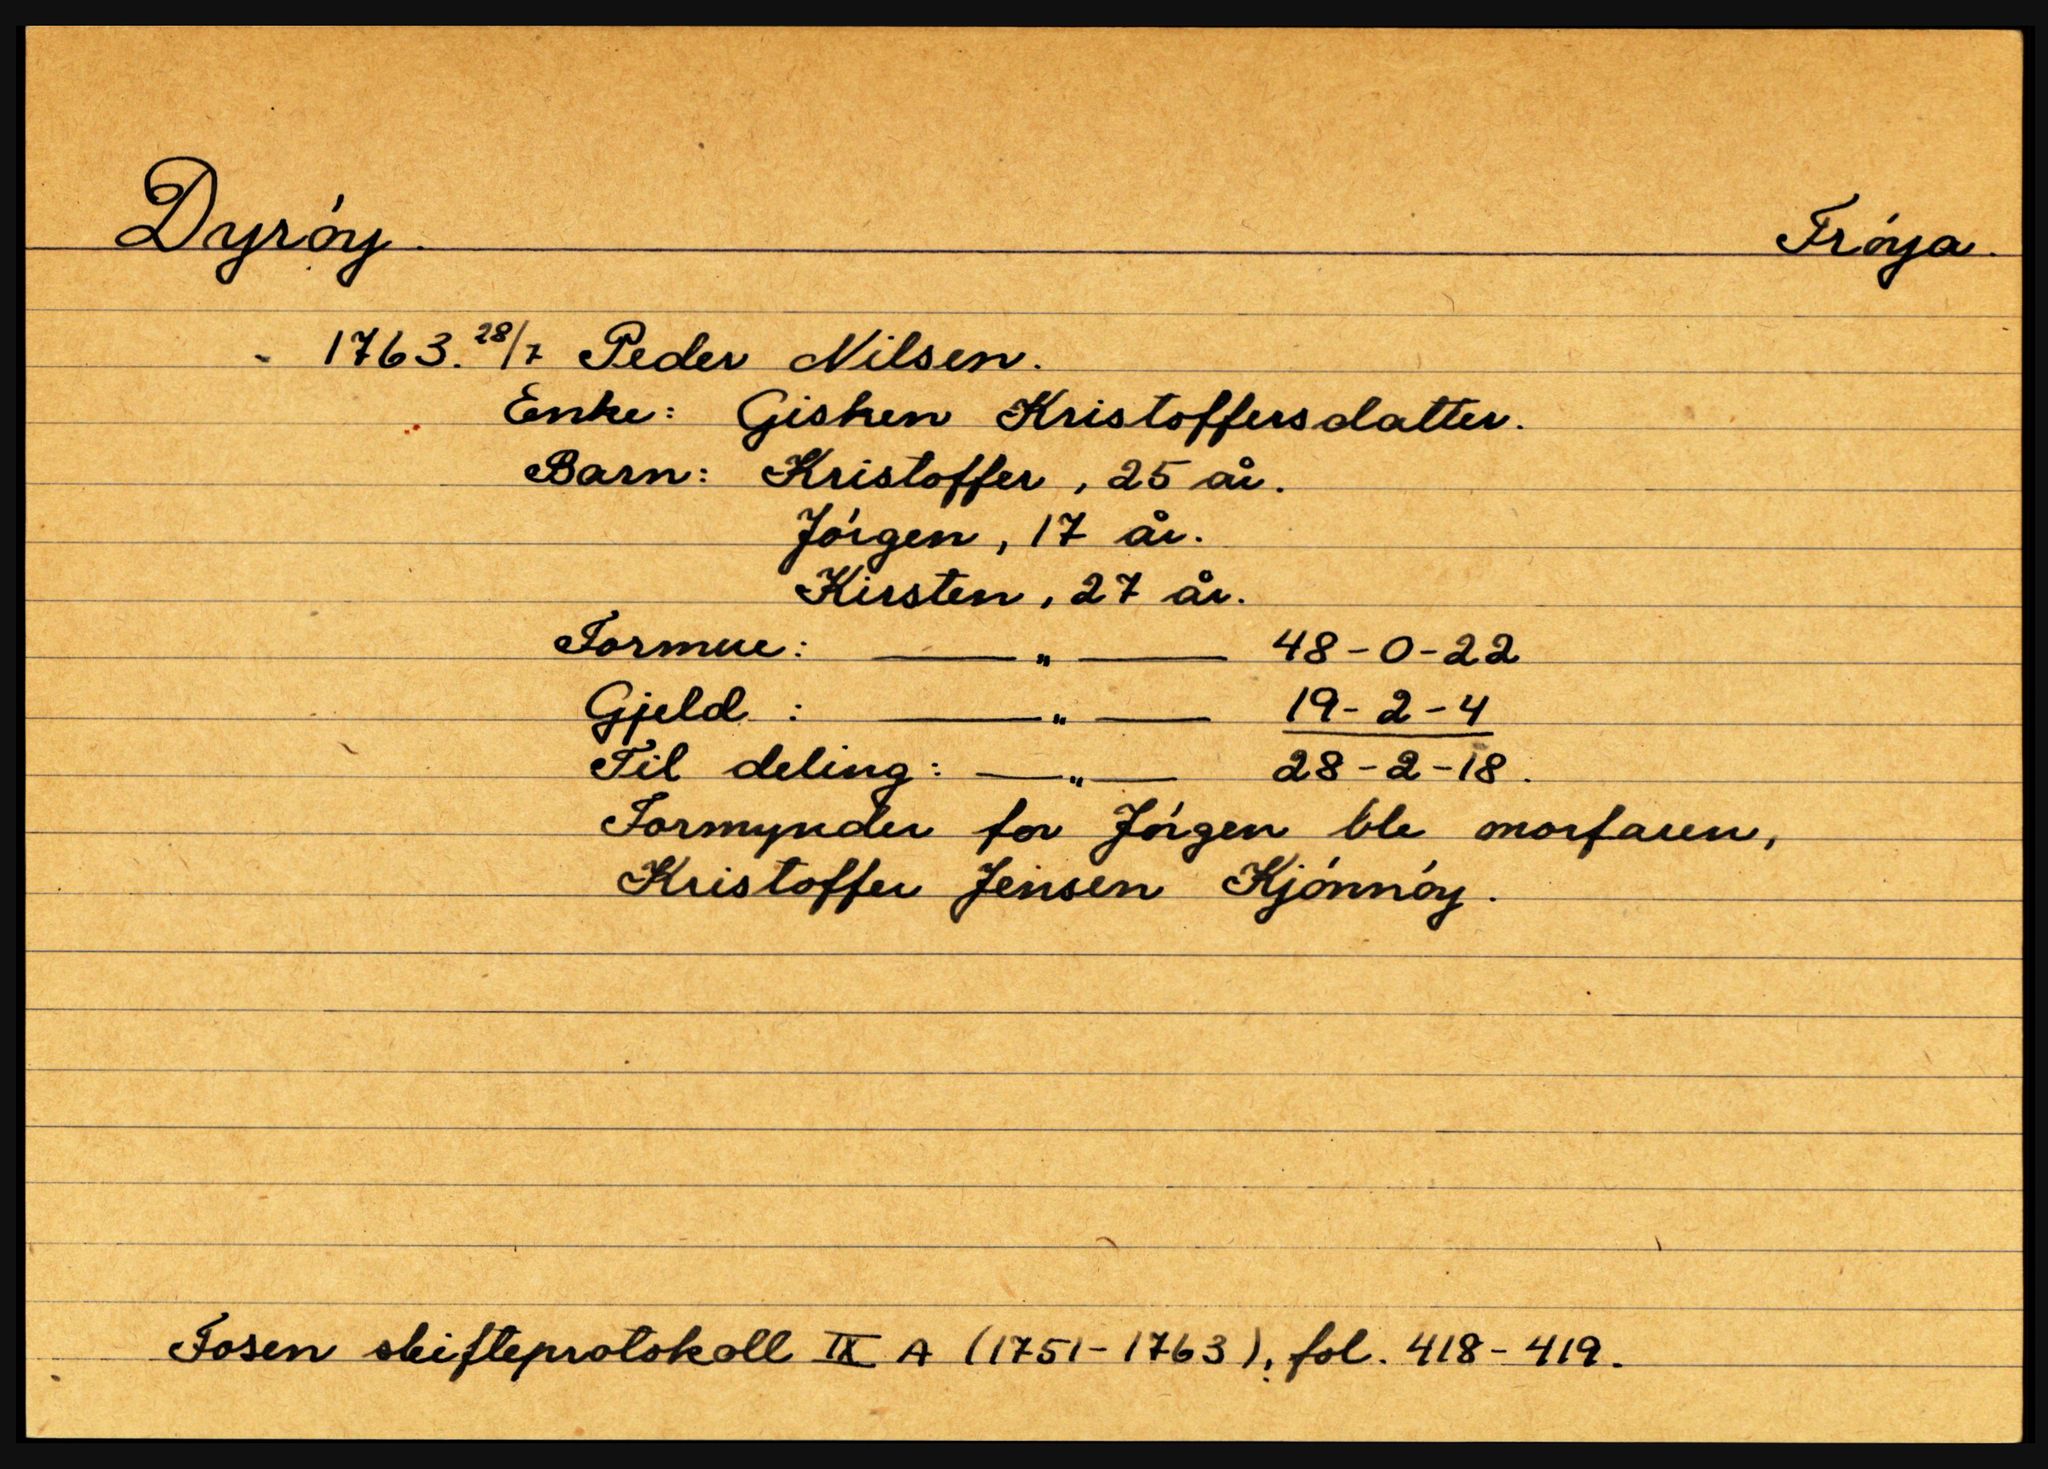 Dyróy. Fróya.
1763. 28/7 Peder Nilsen.
Enke: Gisken Kristoffersdatter.
Barn: Kristoffer, 25 år.
Jórgen, 17 år.
Kirsten, 27 år.
Formue: —„— 48-0-22
Gjeld : —„— 19-2-4
Til deling: —„— 28-2-18.
Formynder for Jórgen ble morfaren,
Kristoffer Jensen Kjónnóy.
Fosen skifteprotokoll IX A (1751-1763), fol. 418-419.